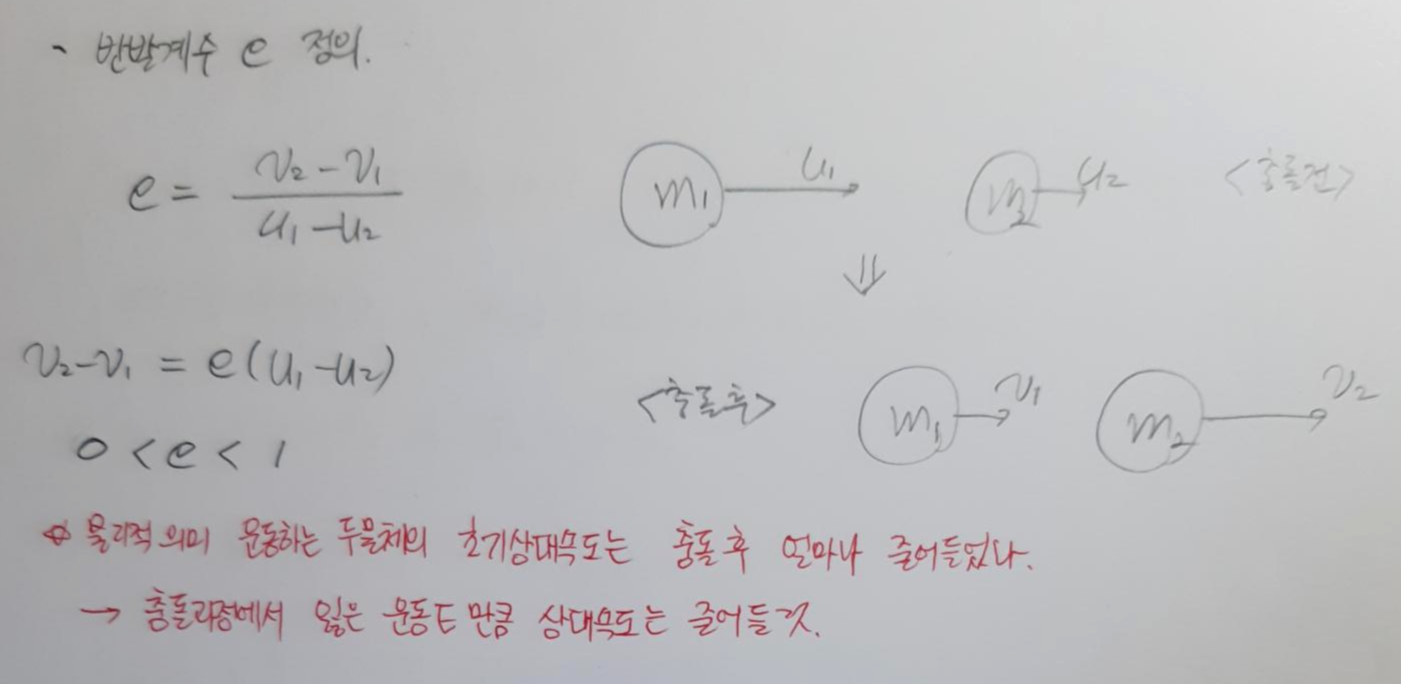 - 반발계수 e 정의.
e = (v₂ - v₁) / (u₁ - u₂)
m₁ u₁ m₂ u₂ <충돌전>
⇓
v₂-v₁ = e(u₁-u₂)
<충돌후> m₁ v₁ m₂ v₂
0 < e < 1
물리적 의미 운동하는 두물체의 초기상대속도는 충돌 후 얼마나 줄어들었나.
→ 충돌과정에서 잃은 운동E 만큼 상대속도는 줄어들 것.